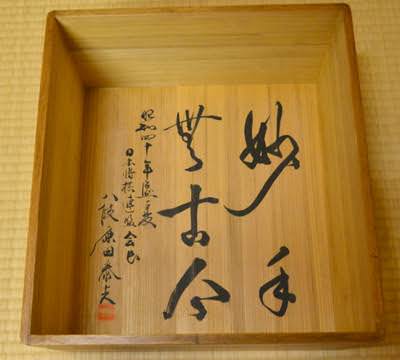 妙手
無古今
昭和四十年盛夏
日本将棋連盟会長
八段 原田泰夫